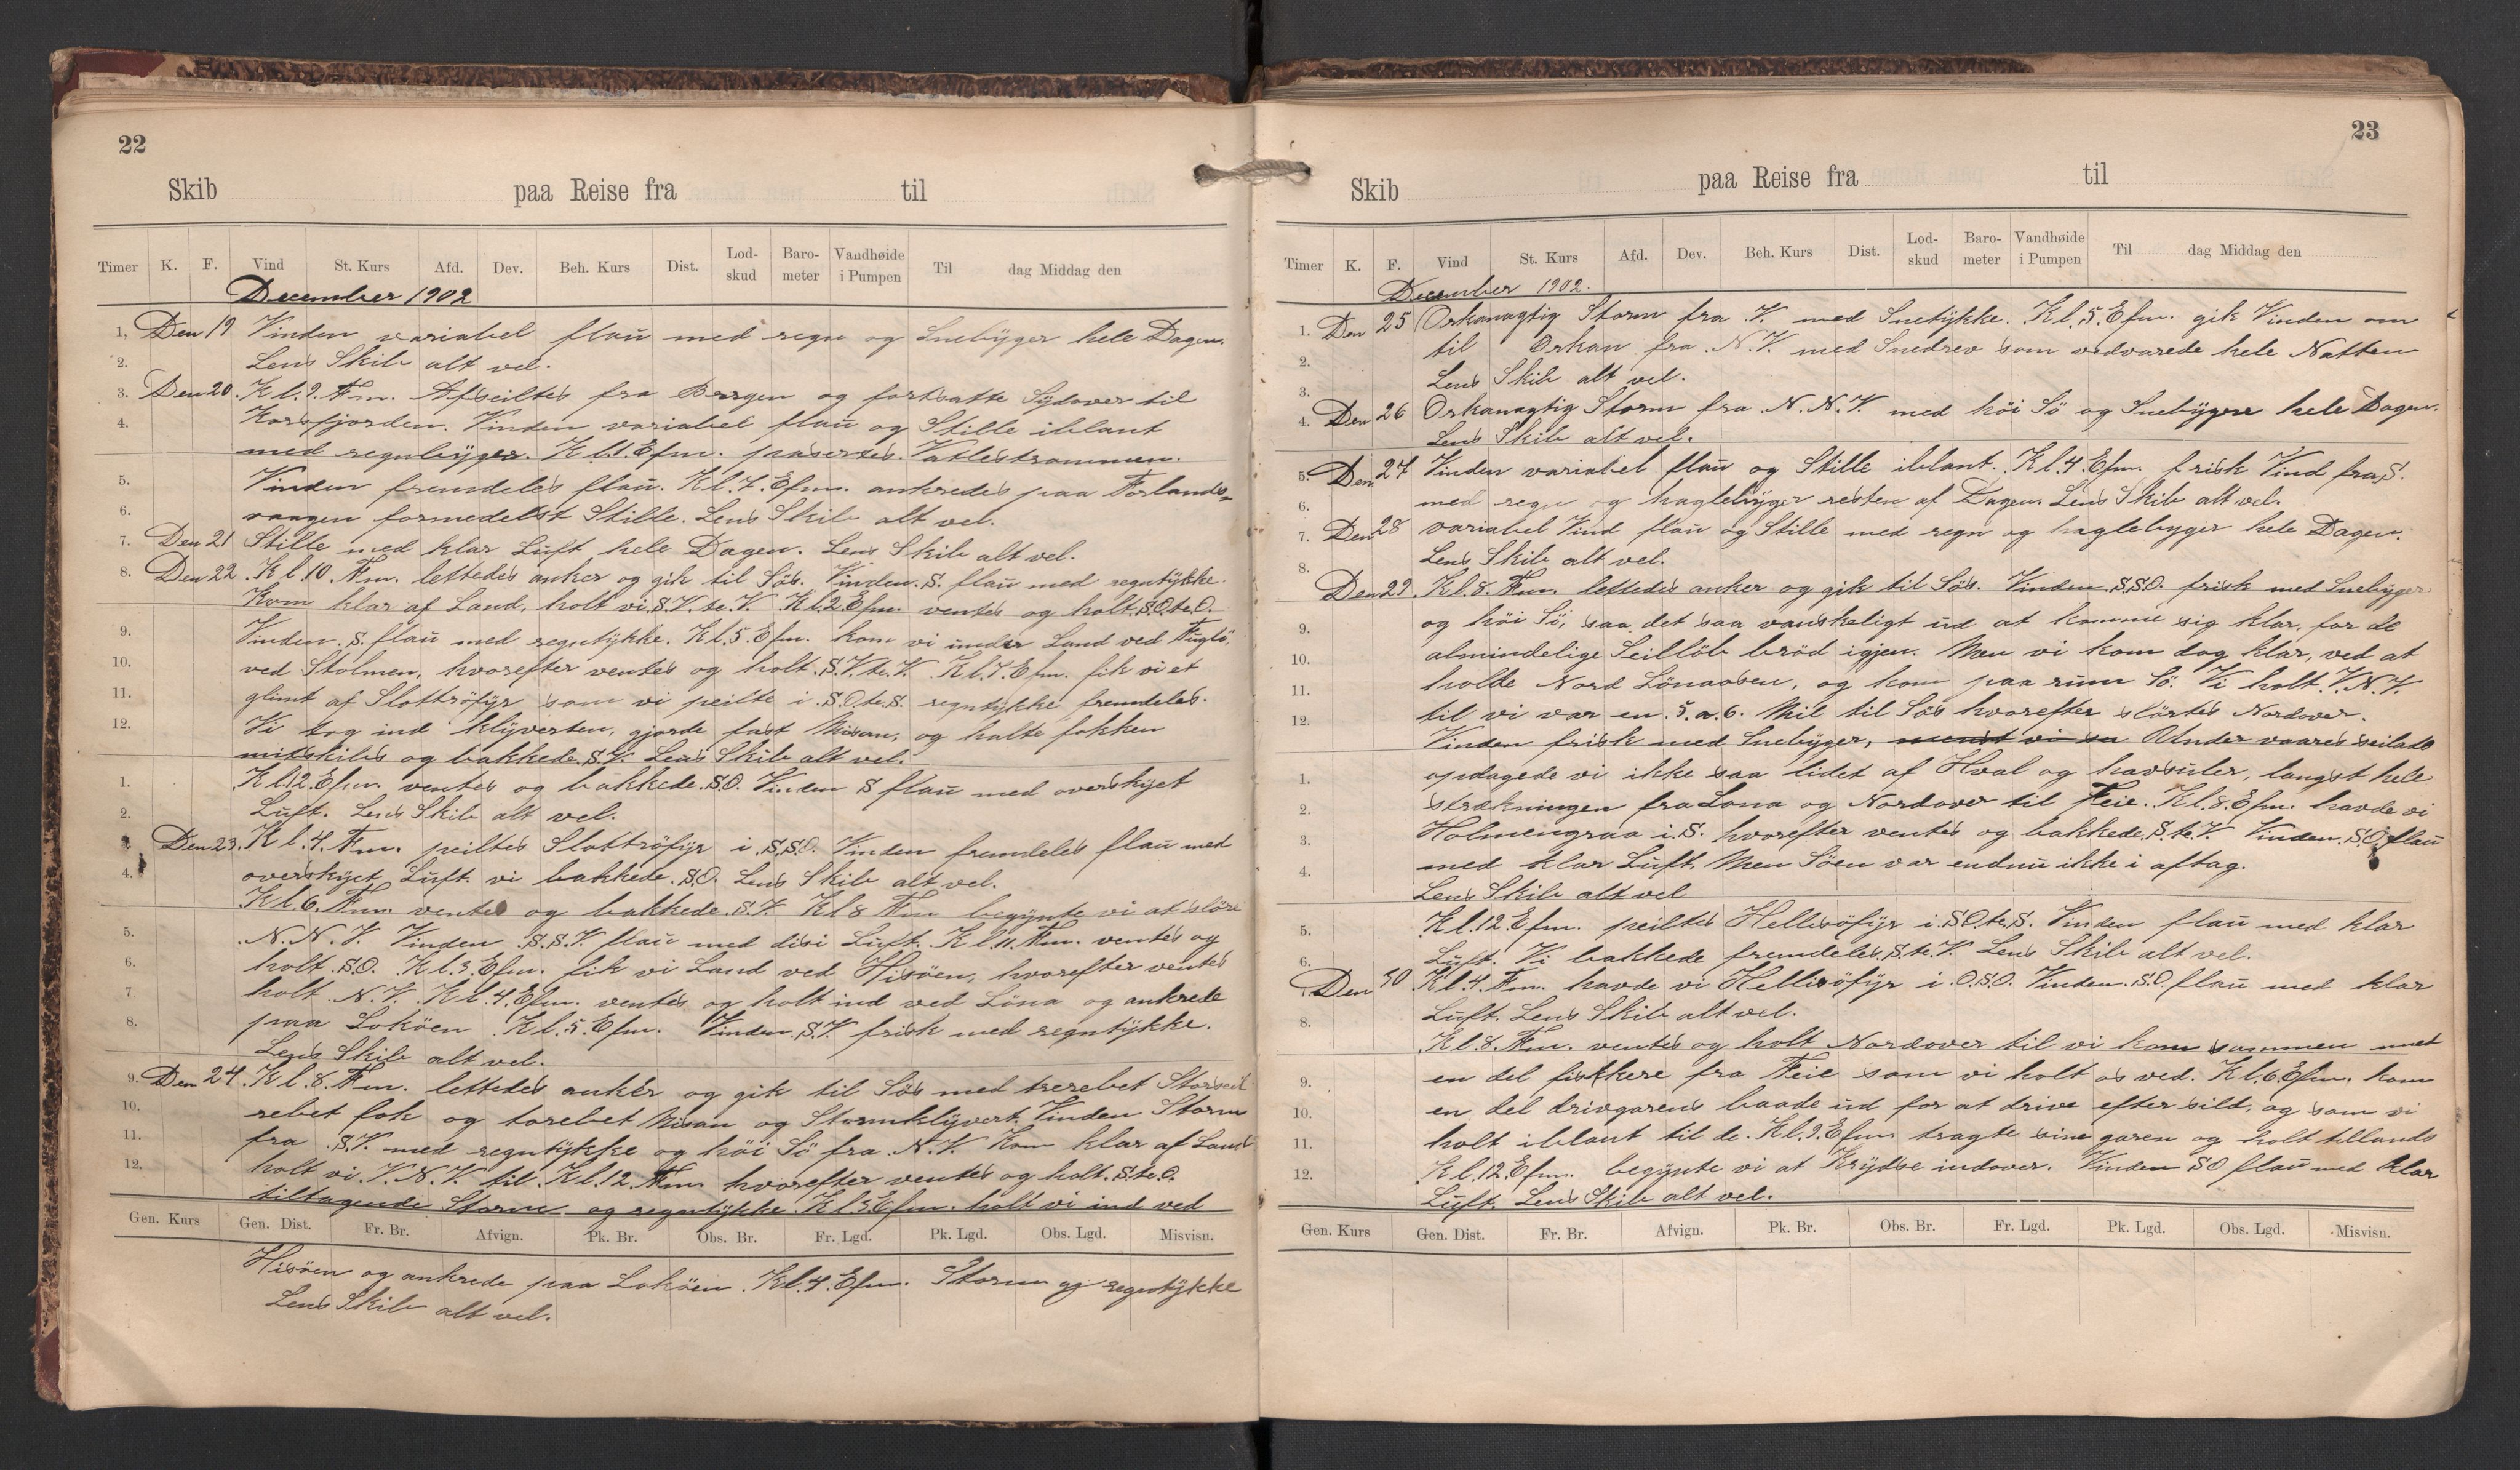 22
Skib paa Reise fra til
Timer K. F. Vind St. Kurs Afd. Dev. Beh. Kurs Dist. Lod-skud Baro-meter Vandhøide i Pumpen Til dag Middag den
December 1902
1. Den 19 Vinden variabel flau med regn og Snebyger hele Dagen.
2. Lens Skib alt vel.
3. Den 20. Kl. 9. Fm. Afseiltes fra Bergen og fortsatte Sydover til
4. Korsfjorden. Vinden variabel flau og Stille iblant
med regnbyger. Kl. 1. Efm. pasertes Vatlestrømmen.
5. Vinden fremdeles flau. Kl. 7. Efm. ankredes paa Forlands-
6. vaagen formedelst Stille. Lens Skib alt vel.
7. Den 21 Stille med klar Luft hele Dagen. Lens Skib alt vel.
8. Den 22. Kl. 10. Fm. lettedes anker og gik til Søs. Vinden S. flau med regntykke.
Kom klar af Land, holt vi S.V.te.V. Kl. 2. Efm. ventes og holt S.O.te.O.
9. Vinden S. flau med regntykke. Kl. 5. Efm. kom vi under Land ved Fuglö,
10. ved Stolmen, hvorefter ventes og holt S.V.te.V. Kl. 7. Efm. fik vi et
11. glimt af Slottröfyr som vi peilte i S.O.te.S. regntykke fremdeles.
12. Vi tog ind klyverten, gjorde fast Misan, og halte fokken
mitskibs og bakkede S.V. Lens Skib alt vel.
1. Kl. 12. Efm. ventes og bakkede S.O. Vinden S flau med overskyet
2. Luft. Lens Skib alt vel.
3. Den 23. Kl. 4. Fm. peiltes Slottröfyr i S.S.O. Vinden fremdeles flau med
4. overskyet Luft. vi bakkede S.O. Lens Skib alt vel.
Kl. 6. Fm. ventes og bakkede S.V. Kl 8 Fm begynte vi at slöre
5. N.N.V. Vinden S.S.V. flau med disi Luft. Kl. 11. Fm. ventes og
6. holt S.O. Kl. 3. Efm. fik vi Land ved Hisöen, hvorefter ventes
7. holt N.V. Kl. 4. Efm. ventes og holt ind ved Löna og ankrede
8. paa Loköen Kl. 5. Efm. Vinden S.V. frisk med regntykke.
Lens Skib alt vel.
9. Den 24. Kl. 8. Fm. lettedes anker og gik til Søs med trerebet Storseil
10. rebet fok og torebet Misan og Stormklyvert. Vinden Storm
11. fra S.V. med regntykke og höi Sö fra N.V. Kom klar af Land
12. holt vi V.N.V. til Kl. 12. Fm. hvorefter ventes og holt S.te.O.
tiltagende Storm og regntykke. Kl 3. Efm. holt vi ind ved
Gen. Kurs Gen. Dist. Fr. Br. Afvign. Pk. Br. Obs. Br. Fr. Lgd. Pk. Lgd. Obs. Lgd. Misvisn.
Hisöen og ankrede paa Loköen. Kl. 4. Efm. Storm og regntykke
Lens Skib alt vel.
23
Skib paa Reise fra til
Timer K. F. Vind St. Kurs Afd. Dev. Beh. Kurs Dist. Lod-skud Baro-meter Vandhøide i Pumpen Til dag Middag den
December 1902.
1. Den 25 Orkanagtig Storm fra V. med Snetykke. Kl. 5. Efm. gik Vinden om
2. til Orkan fra N.V. med Snedrev som vedvarede hele Natten
3. Lens Skib alt vel.
4. Den 26 Orkanagtig Storm fra N.N.V. med höi Sö og Snebyger hele Dagen.
Lens Skib alt vel.
5. Den 27 Vinden variabel flau og Stille iblant. Kl. 4. Efm. frisk Vind fra S.
6. med regn og haglebyger resten af Dagen. Lens Skib alt vel.
7. Den 28 variabel Vind flau og Stille med regn og haglebyger hele Dagen.
8. Lens Skib alt vel.
Den 29. Kl. 8. Fm. lettedes anker og gik til Søs. Vinden S.S.O. frisk med Snebyger
9. og höi Sö, saa det saa vanskeligt ud at komme sig klar, for de
10. almindelige Seillöb bröd igjen. Men vi kom dog klar, ved at
11. holde Nord Lönaosen, og kom paa rum Sö. Vi holt V.N.V.
12. til vi var en 5. a. 6. Mil til Søs hvorefter slörtes Nordover.
Vinden frisk med Snebyger, Under vaares seilads
1. opdagede vi ikke saa lidet af Hval og havsuler, langst hele
2. strækningen fra Lona og Nordover til Feie. Kl. 8. Efm. havde vi
3. Holmengraa i S. hvorefter ventes og bakkede S.te.V. Vinden S.O. flau
4. med klar Luft, Men Söen var endnu ikke i aftag.
Lens Skib alt vel
5. Kl. 12. Efm. peiltes Hellisöfyr i S.O.te.S. Vinden flau med klar
6. Luft. Vi bakkede fremdeles S.te.V. Lens Skib alt vel.
7. Den 30 Kl. 4. Fm. havde vi Hellisöfyr i O.S.O. Vinden S.O. flau med klar
8. Luft. Lens Skib alt vel.
Kl. 8. Fm. ventes og holt Nordover til vi kom sammen met
9. en del fiskkere fra Feie som vi holt os ved. Kl. 6. Efm. kom
10. en del drivgarens baade ud for at drive efter sild, og som vi
11. holt iblant til de. Kl. 9. Efm. tragte sine garen og holt tillands
12. Kl. 12. Efm. begynte vi at Krydse indover. Vinden SO flau med klar
Luft. Lens Skib alt vel.
Gen. Kurs Gen. Dist. Fr. Br. Afvign. Pk. Br. Obs. Br. Fr. Lgd. Pk. Lgd. Obs. Lgd. Misvisn.